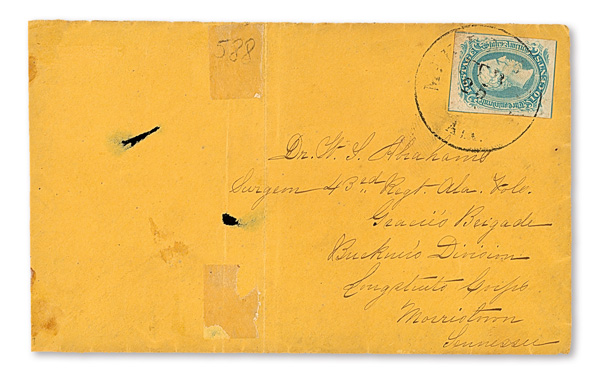 588
Ala.
Dr. W. S. Abrahams
Surgeon 43rd Regt. Ala. Vols.
Gracie's Brigade
Buckner's Division
Longstreets Corps
Morristown
Tennessee